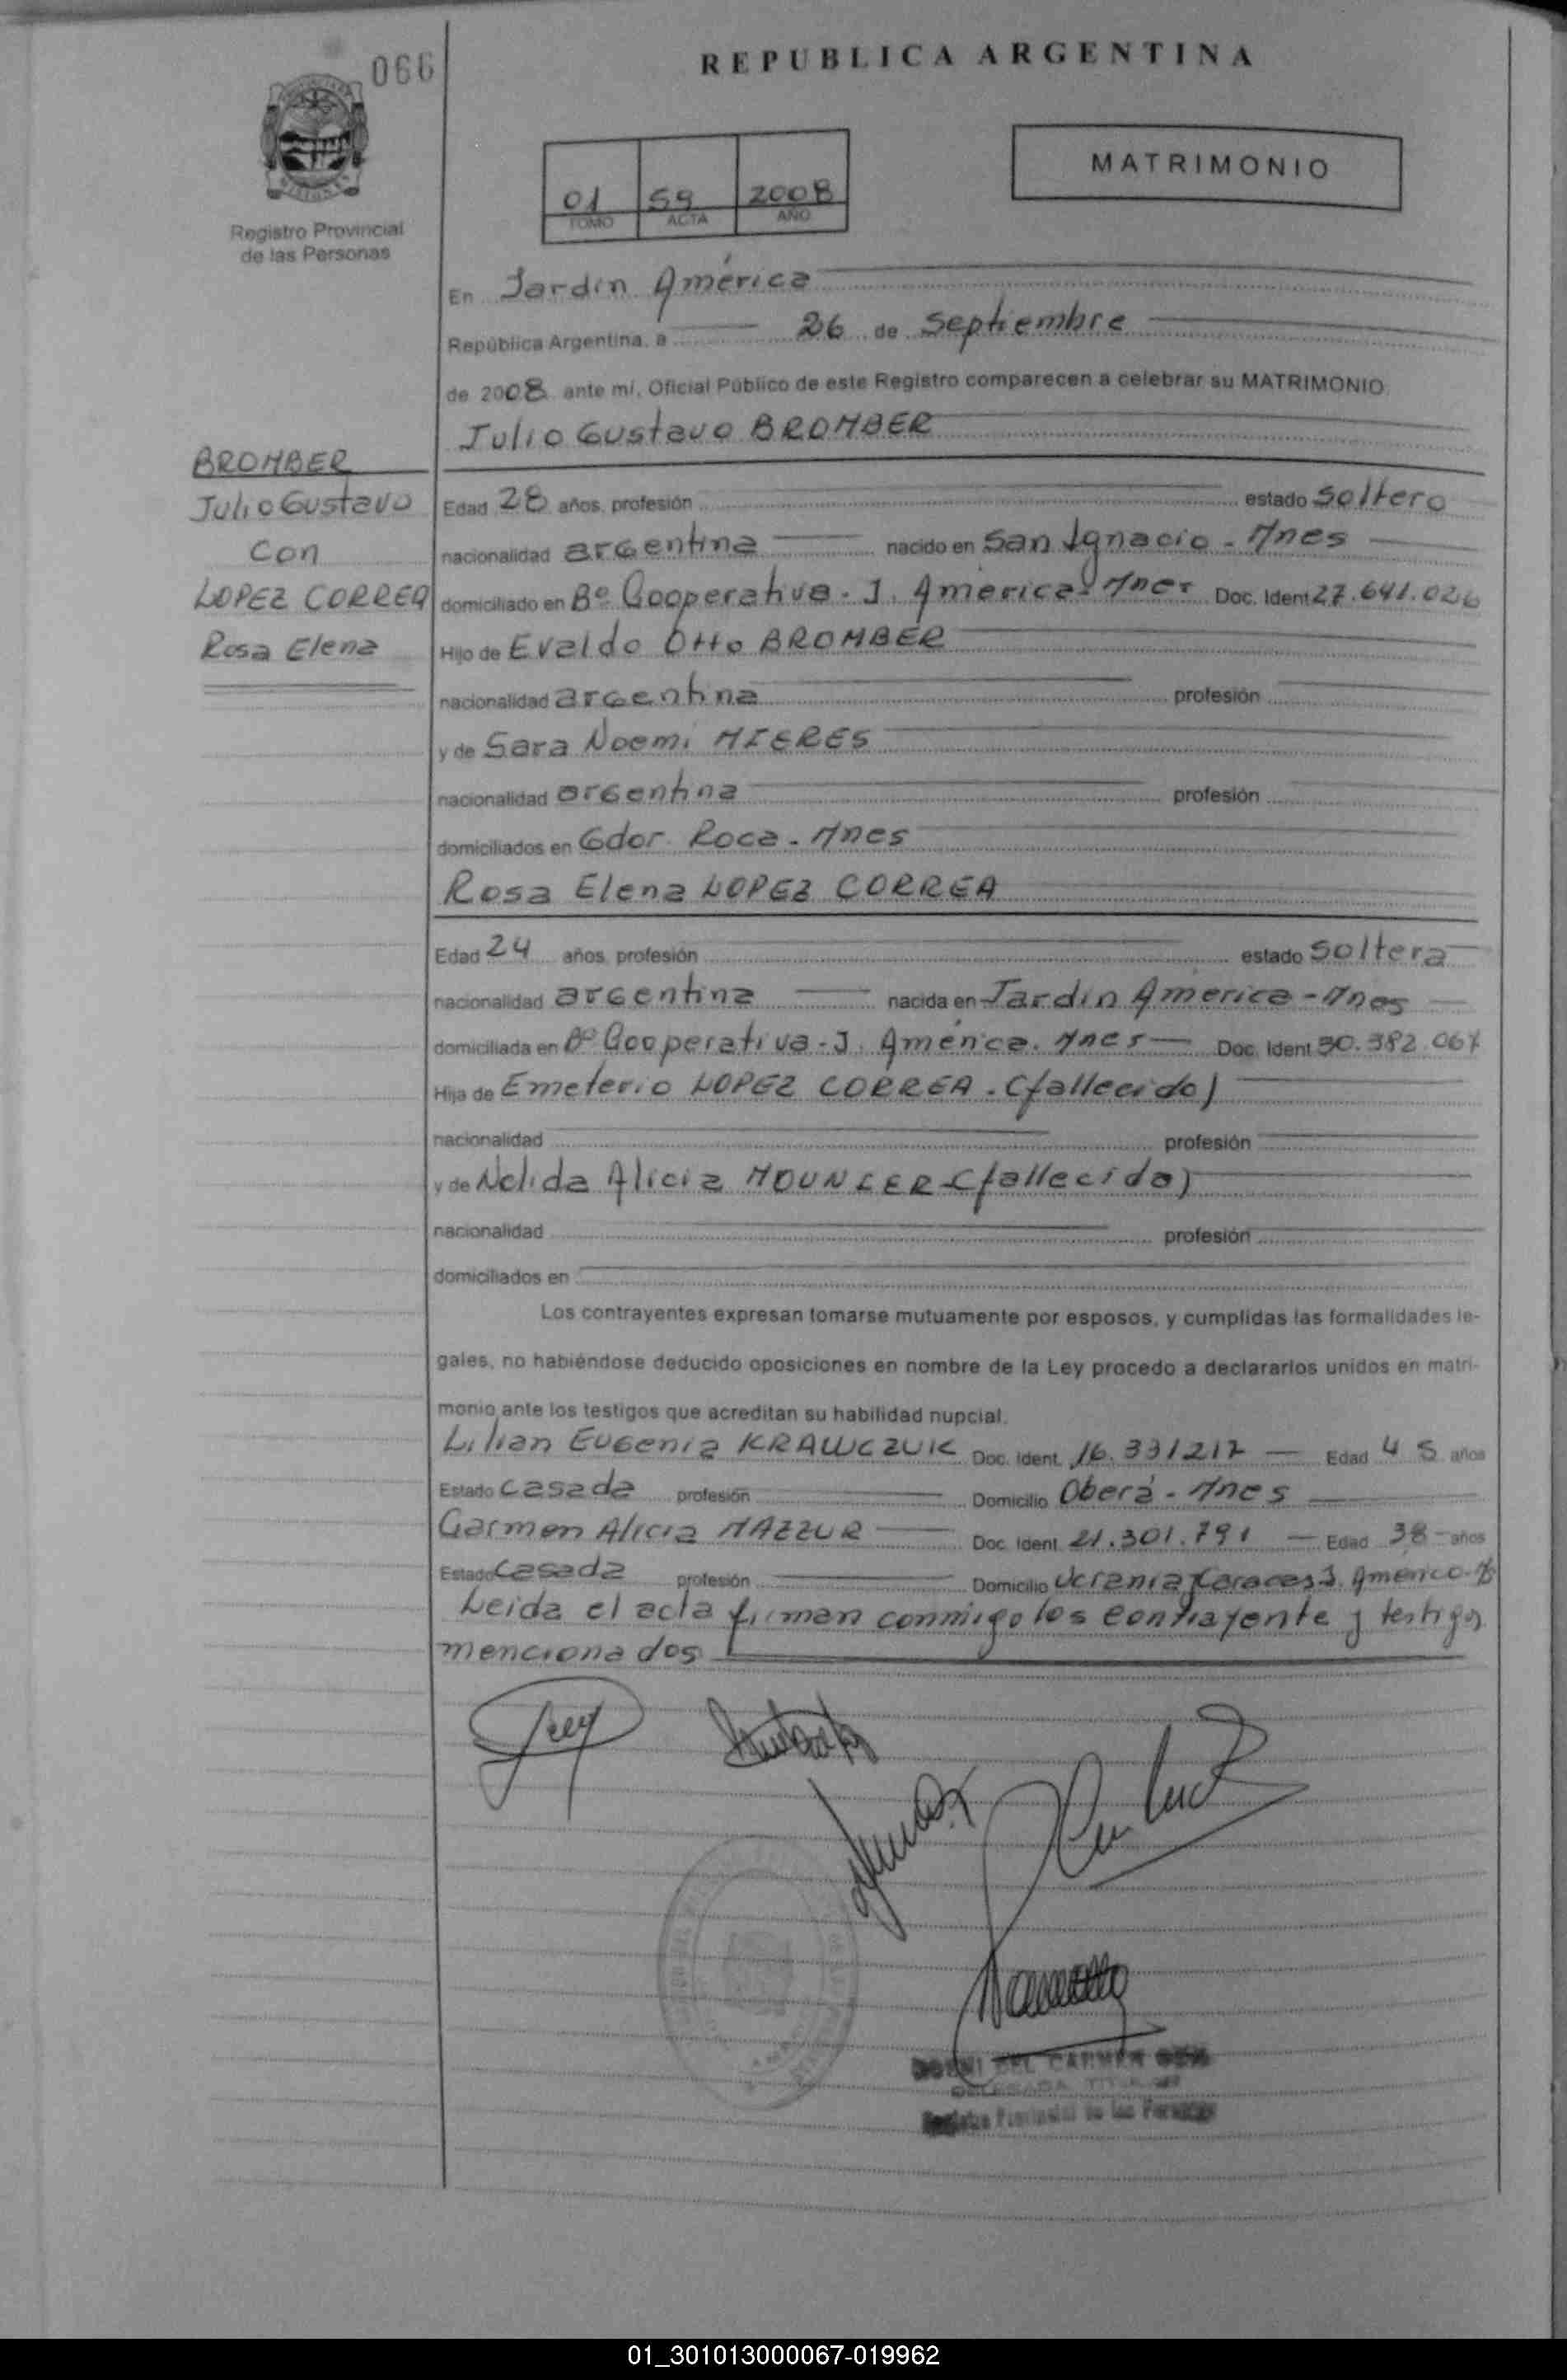 066
REPUBLICA ARGENTINA
MATRIMONIO
01 59 2008
TOMO ACTA AÑO
Registro Provincial
de las Personas
En Jardín América
República Argentina, a 26 de septiembre
de 2008 ante mí, Oficial Público de este Registro comparecen a celebrar su MATRIMONIO
Julio Gustavo BROMBER
BROMBER
Julio Gustavo
Con
LOPEZ CORREA
Rosa Elena
Edad 28 años, profesión estado soltero
nacionalidad argentina nacido en San Ignacio - Mnes
domiciliado en Bº Cooperativa - J. América - Mnes Doc. Ident 27.641.026
Hijo de Evaldo Otto BROMBER
nacionalidad argentina profesión
y de Sara Noemi MIERES
nacionalidad argentina profesión
domiciliados en Gdor. Roca - Mnes
Rosa Elena LOPEZ CORREA
Edad 24 años, profesión estado soltera
nacionalidad argentina nacida en Jardín América - Mnes
domiciliada en Bº Cooperativa - J. América. Mnes Doc. Ident 30.382.067
Hija de Emeterio LOPEZ CORREA - (fallecido)
nacionalidad profesión
y de Nelida Alicia (fallecida)
nacionalidad profesión
domiciliados en
Los contrayentes expresan tomarse mutuamente por esposos, y cumplidas las formalidades le-
gales, no habiéndose deducido oposiciones en nombre de la Ley procedo a declararlos unidos en matri-
monio ante los testigos que acreditan su habilidad nupcial.
Lilian Eugenia KRAWCZUK Doc. Ident. 16.331217 Edad 45 años
Estado casada profesión Domicilio Oberá - Mnes
Carmen Alicia MAZZUR Doc. Ident. 21.301.791 Edad 38 años
Estado casada profesión Domicilio Ucrania y Caracas J. América
Leida el acta firman conmigo los contrayente y testigos
mencionados
DEL CARMEN
DELEGADA TITULAR
Registro Provincial de las Personas
01_301013000067-019962